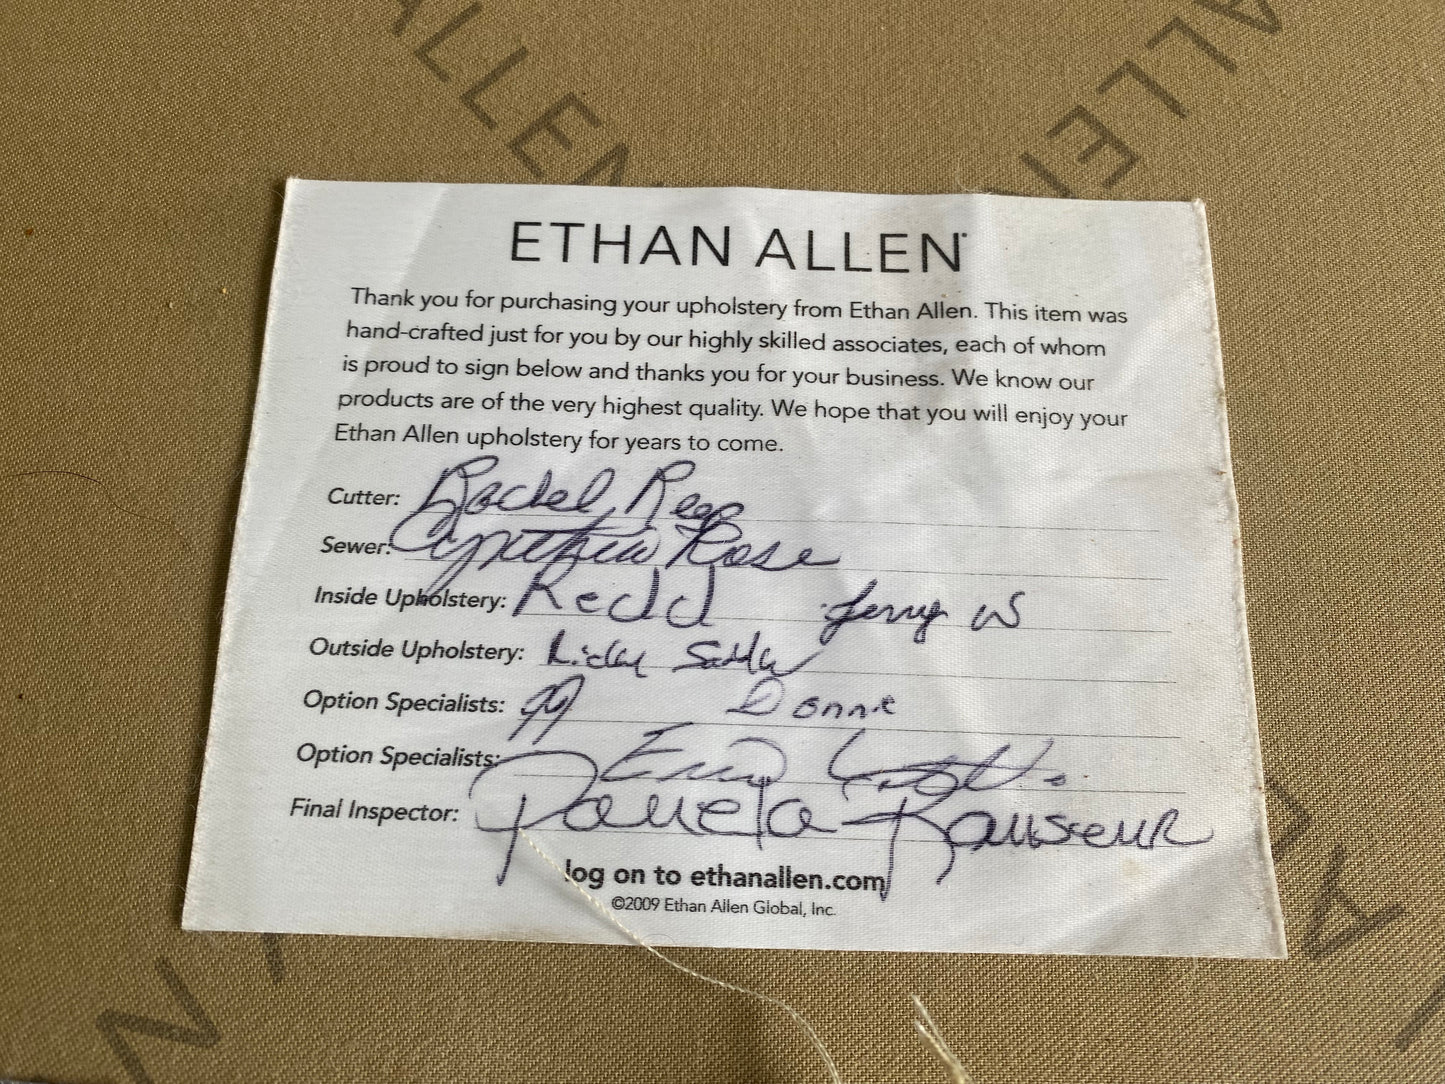 ALLEN
ALLEN
ETHAN ALLEN
Thank you for purchasing your upholstery from Ethan Allen. This item was
hand-crafted just for you by our highly skilled associates, each of whom
is proud to sign below and thanks you for your business. We know our
products are of the very highest quality. We hope that you will enjoy your
Ethan Allen upholstery for years to come.
Cutter: Rachel
Sewer: Cynthia Rose
Inside Upholstery: Redd Jerry W
Outside Upholstery: Ricky
Option Specialists: Donnie
Option Specialists:
Final Inspector: Pamela
log on to ethanallen.com
©2009 Ethan Allen Global, Inc.